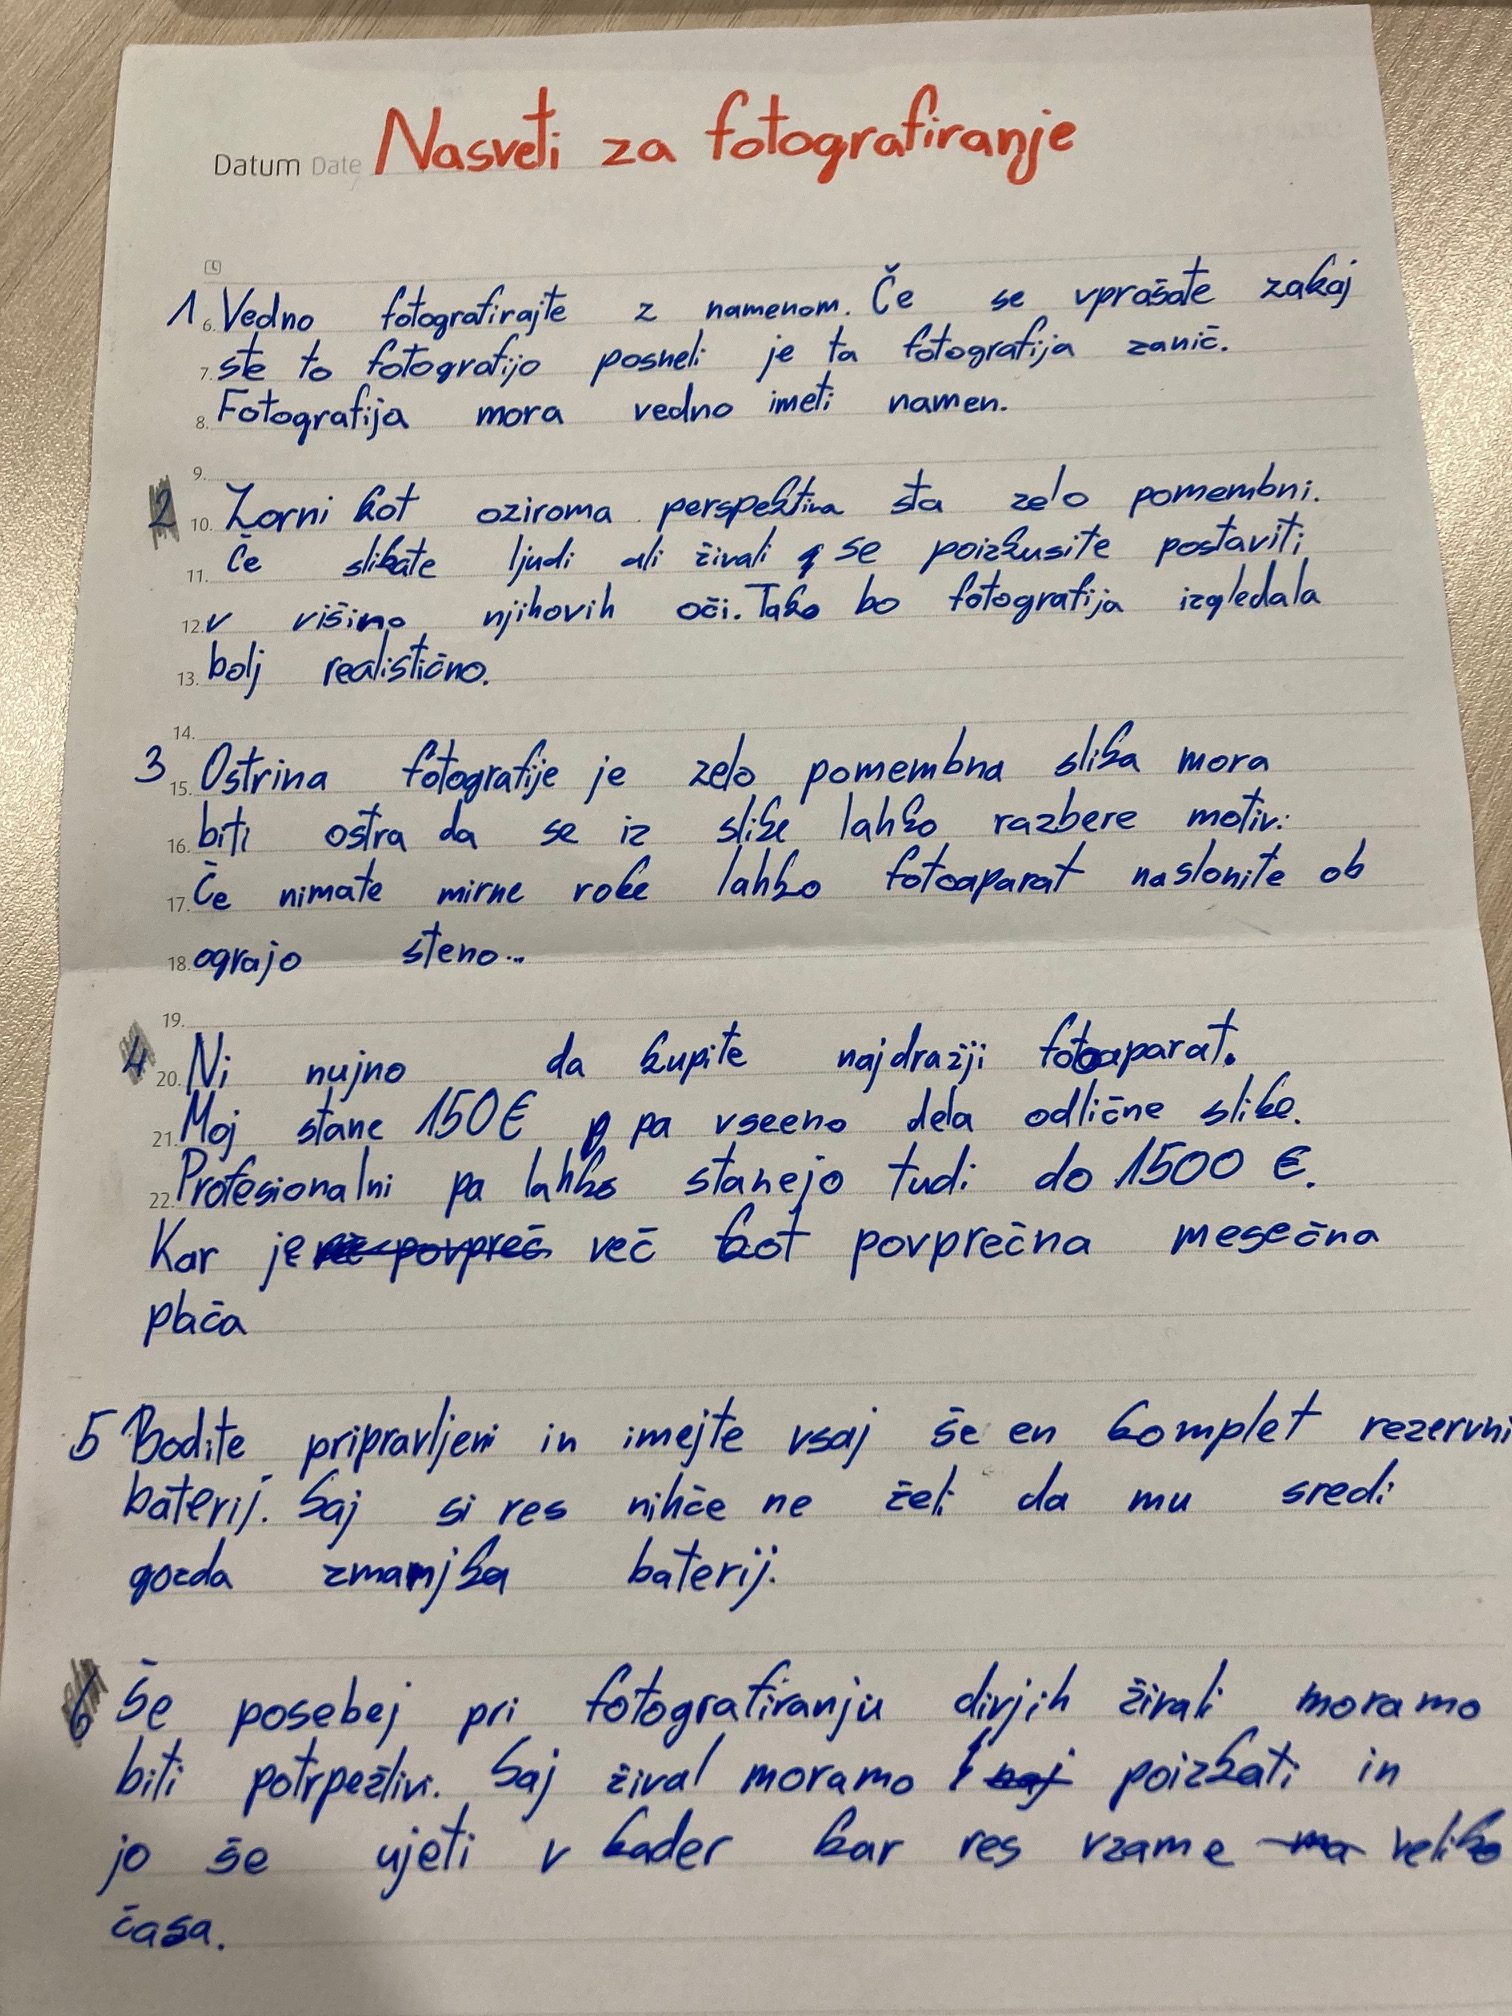 Datum Date Nasveti za fotografiranje
1 6. Vedno fotografirajte z namenom. Če se vprašate zakaj
7. ste to fotografijo posneli je ta fotografija zanič.
8. Fotografija mora vedno imeti namen.
9.
2 10. Zorni kot oziroma perspektiva sta zelo pomembni.
11. Če slikate ljudi ali živali se poizkusite postaviti
12. v višino njihovih oči. Tako bo fotografija izgledala
13. bolj realistično.
14.
3 15. Ostrina fotografije je zelo pomembna slika mora
16. biti ostra da se iz slike lahko razbere motiv.
17. Če nimate mirne roke lahko fotoaparat naslonite ob
18. ograjo steno...
19.
4 20. Ni nujno da kupite najdražji fotoaparat.
21. Moj stane 150€ pa vseeno dela odlične slike.
22. Profesionalni pa lahko stanejo tudi do 1500 €.
Kar je več kot povprečna mesečna
plača
5 Bodite pripravljeni in imejte vsaj še en komplet rezervni
baterij. Saj si res nihče ne želi da mu sredi
gozda zmanjka baterij.
6 Še posebej pri fotografiranju divjih živali moramo
biti potrpežlivi. Saj žival moramo poizkati in
jo še ujeti v kader kar res vzame veliko
časa.